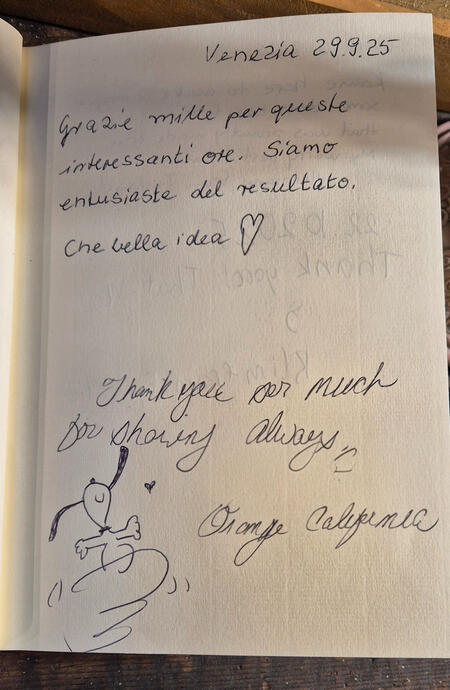 Venezia 29.9.25
Grazie mille per queste
interessanti ore. Siamo
entusiaste del resultato.
Che bella idea
Thank you sor much
for sharing always
Orange California